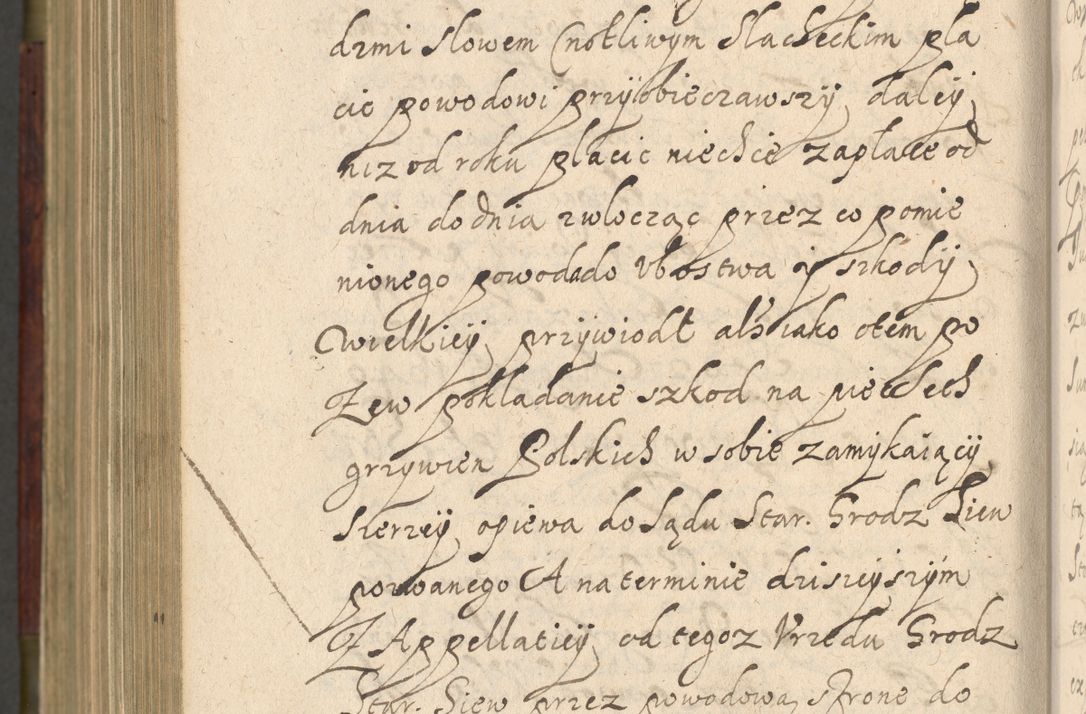 dzmi słowem Cnotliwym Slacheckim pła
cic powodowi przyobieczawszy, daley,
niz od roku płacic niechcie zapłate od
dnia do dnia zwlocząc przez co pomie
nionego powoda do Vbostwa y szkody,
Wielkiey, przywiodł als iako otem po
Zew pokładanie szkod na piec Sech
grzywien Polskich w sobie zamykaiący,
szerzey, opiewa do Sądu Star. Grodz Siew
pozwanego A na terminie dzisieyszym
Z Appellatiey, od tegoz Vrzedu Grodz
Star. Siew przez powodową strone do